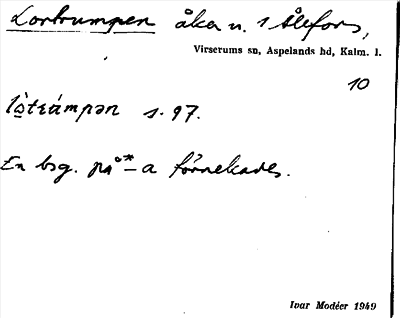 Lortrumpen åker n. 1 Ålefors,
Virserums sn, Aspelands hd, Kalm. l.
10
s. 97.
En bsg. på *–a förnekades.
Ivar Modéer 1949